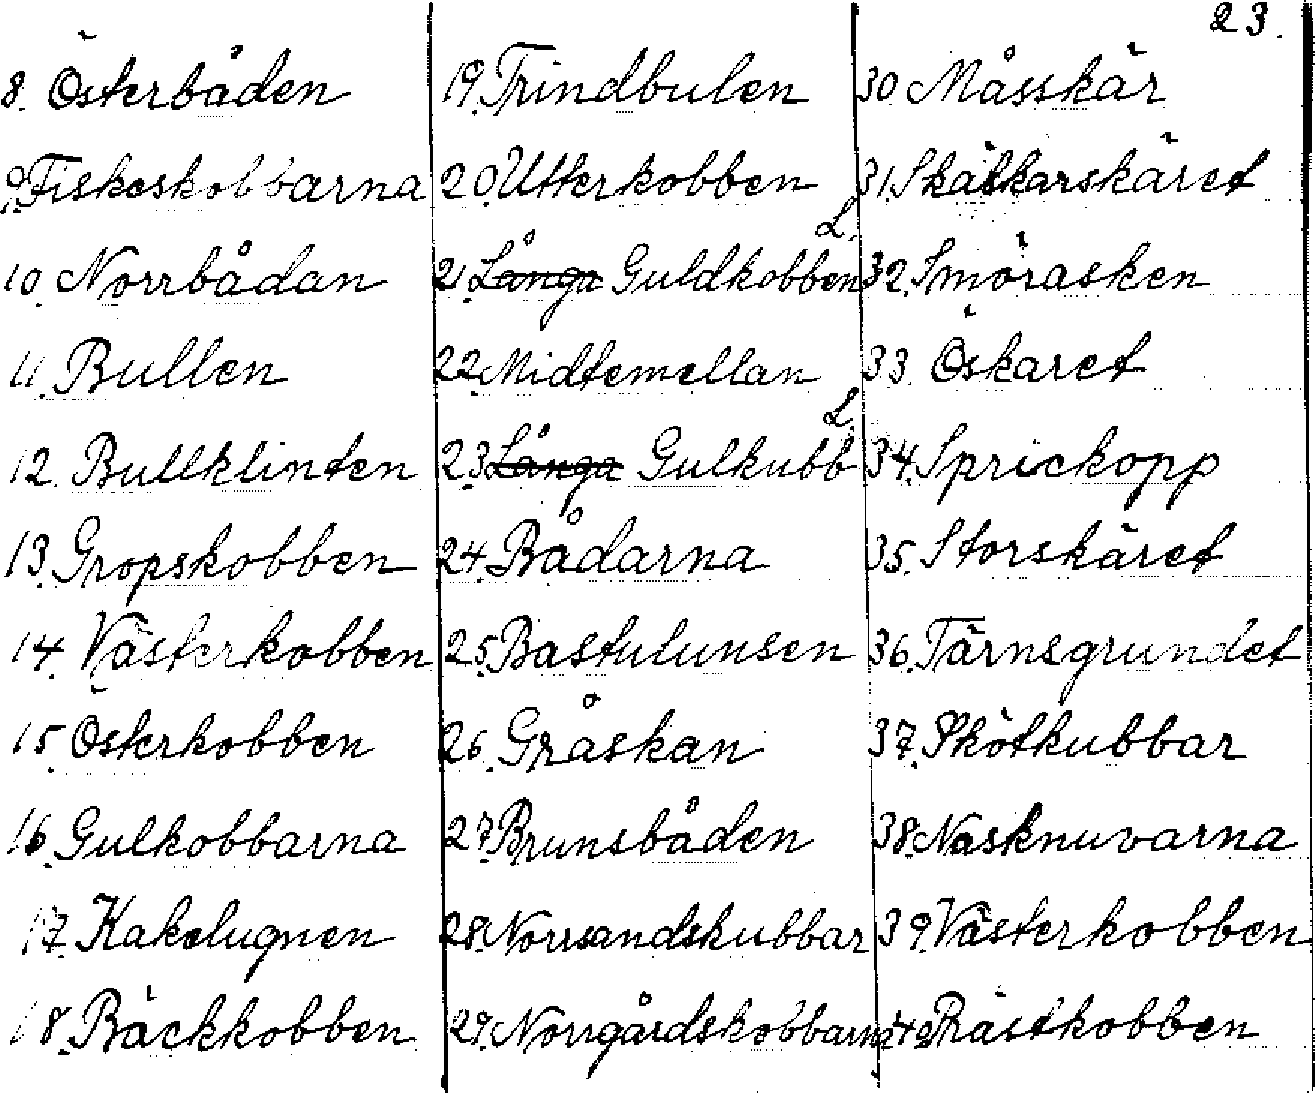 23.
8. Österbåden
9. Fiskeskobbarna
10. Norrbådan
11. Bullen
12. Bullklinten
13. Gropskobben
14. Västerkobben
15. Österkobben
16. Gulkobbarna
17. Kakelugnen
18. Bäckkobben
19. Trindbulen
20. Utterkobben
L.
21. Långa Guldkobben
22. Midtemellan
L.
23. Långa Gulkubb
24. Bådarna
25. Bastulunsen
26. Gråskan
27. Brunsbåden
28. Norrsandskubbar
29. Norrgårdskobbarna
30 Måsskär
31. Skätkarskäret
32. Smörasken
33. Öskaret
34. Sprickopp
35. Storskäret
36. Tärnsgrundet
37. Skötkubbar
38. Nasknuvarna
39. Västerkobben
Rästkobben